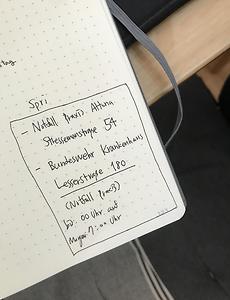 Spri
- Notfall praxis Altona
Stresemannstraße 54
- Bundeswehr Krankenhaus
Lesserstraße 180
(Notfall praxis)
bis 00 Uhr auf